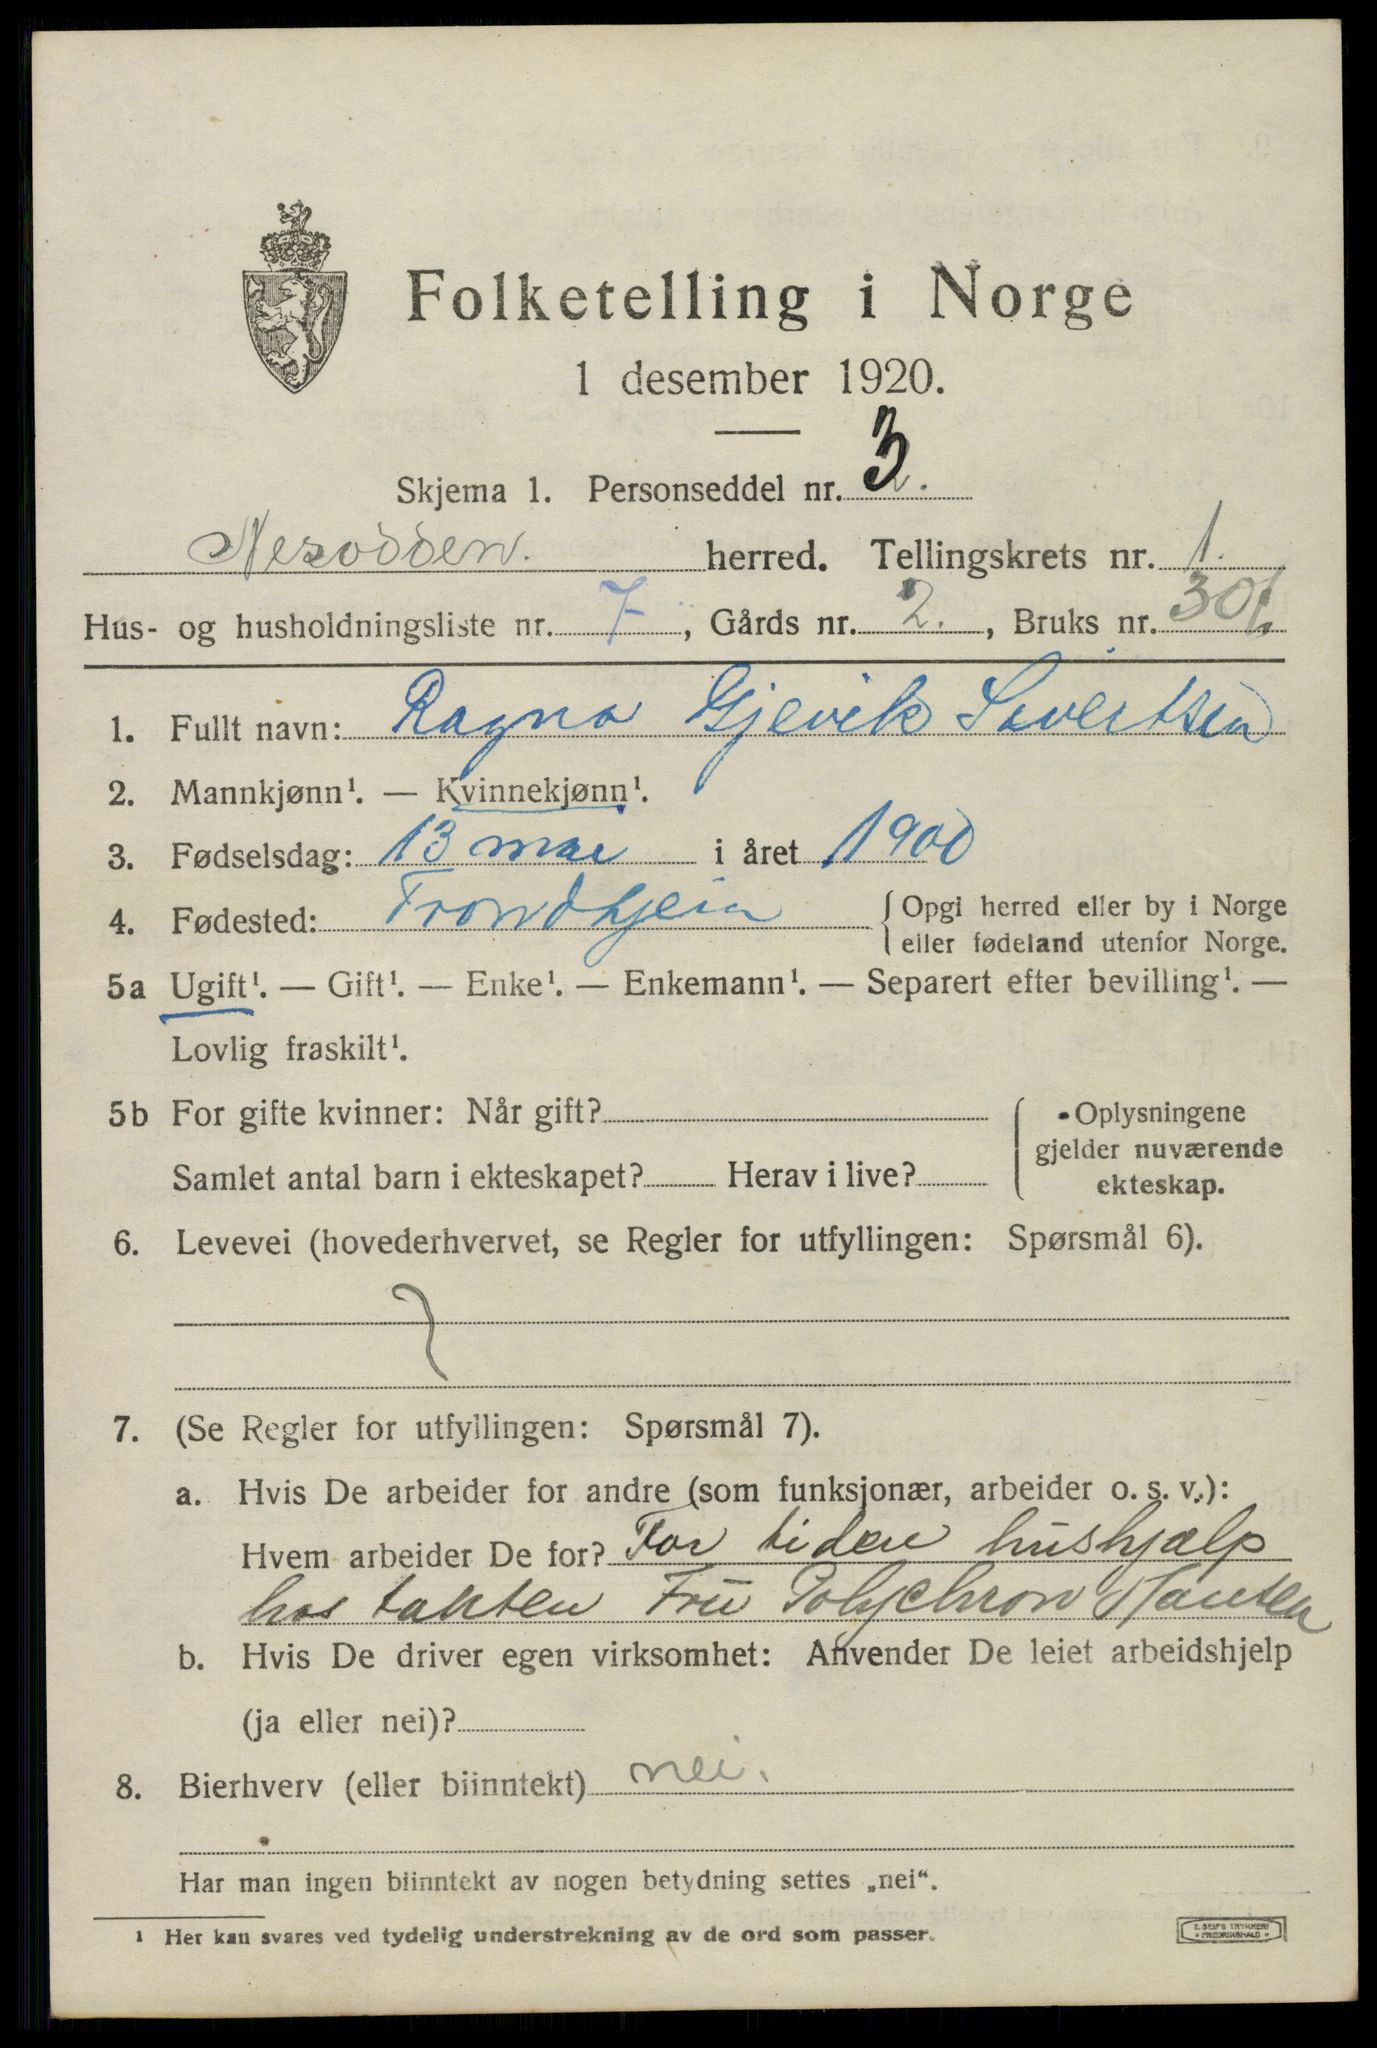 Folketelling i Norge
1 desember 1920.
Skjema 1. Personseddel nr. 3
Nesodden. herred. Tellingskrets nr. 1.
Hus- og husholdningsliste nr. 7, Gårds nr. 2., Bruks nr.
1. Fullt navn: Ragna Gjevik Sivertsen
2. Mannkjønn¹. — Kvinnekjønn¹.
3. Fødselsdag: 13 mai i året 1900
4. Fødested: Trondhjem { Opgi herred eller by i Norge
eller fødeland utenfor Norge.
5a Ugift¹. — Gift¹. — Enke¹. — Enkemann¹. — Separert efter bevilling¹. —
Lovlig fraskilt¹.
5b For gifte kvinner: Når gift? { Oplysningene
gjelder nuværende
Samlet antal barn i ekteskapet? Herav i live? ekteskap.
6. Levevei (hovederhvervet, se Regler for utfyllingen: Spørsmål 6).
7. (Se Regler for utfyllingen: Spørsmål 7).
a. Hvis De arbeider for andre (som funksjonær, arbeider o. s. v.):
Hvem arbeider De for? For tiden hushjælp
hos takten Fru Polychron Hansen
b. Hvis De driver egen virksomhet: Anvender De leiet arbeidshjelp
(ja eller nei)?
8. Bierhverv (eller biinntekt) nei.
Har man ingen biinntekt av nogen betydning settes „nei“.
¹ Her kan svares ved tydelig understrekning av de ord som passer.
E. SEM'S TRYKKERI
FREDRIKSHALD